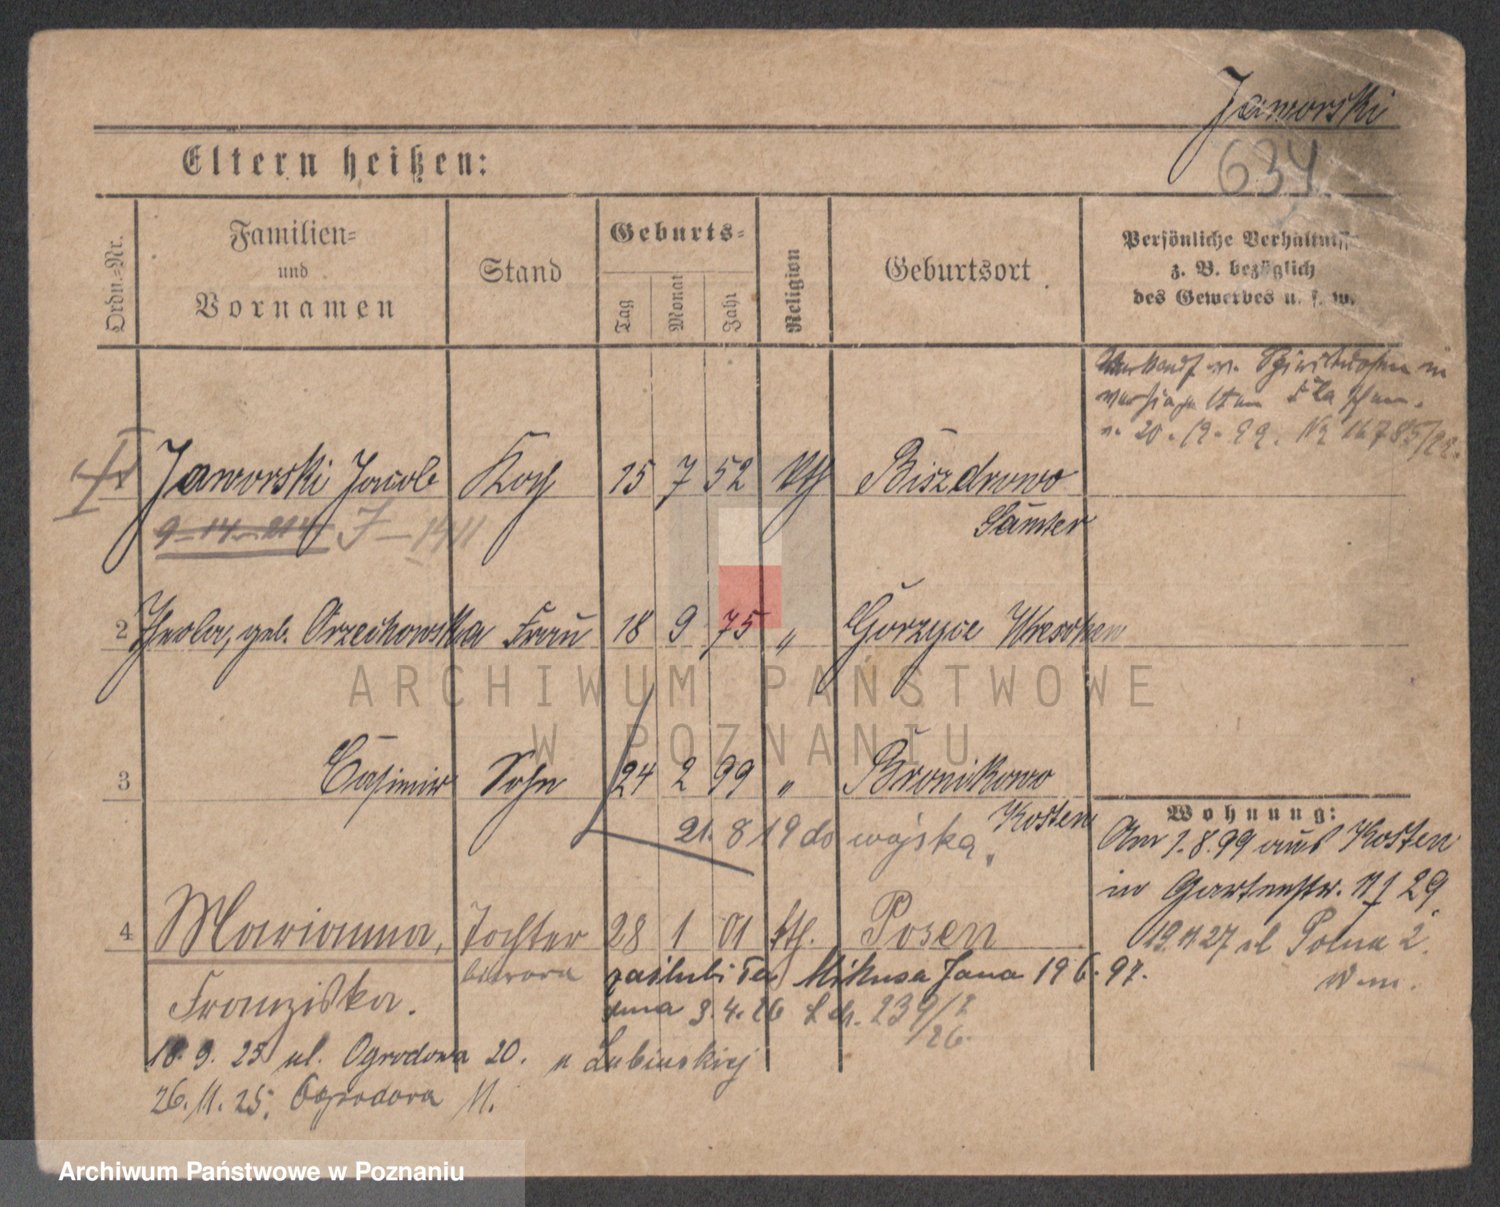 Jaworski
634
Eltern heißen:
Ordn.=Nr.
Familien=
und
Vornamen
Stand
Geburts=
Tag
Monat
Jahr
Religion
Geburtsort
Persönliche Verhältnisse
z. B. bezüglich
des Gewerbes u. s. w.
Verkauf v. Spirituosen in
versiegelten Flaschen.
v. 20. 12. 99.
Jaworski Jacob Koch 15 7 52 kth Biszdrowo
Samter
9-14-214 J-1411
2 geb. Orzechowska Frau 18 9 75 " Gorzyce Wreschen
ARCHIWUM PAŃSTWOWE
W POZNANIU
3 Casimir Sohn 24 2 99 " Bronikowo
Kosten
21. 8 19 do wojska
Wohnung:
Am 1.8.99 aus Kosten
in Gartenstr. No 29
19.11 27 ul Polna 2.
4 Marianna, Tochter 28 1 01 kth. Posen
Franziska.
córora zaślubiła Mikusa Jana 19 6. 97.
dnia 3. 4. 26 239/2
26.
18. 9. 25 ul. Ogrodowa 20. u Lubinskiej
26. 11. 25. Ogrodowa 11.
Archiwum Państwowe w Poznaniu